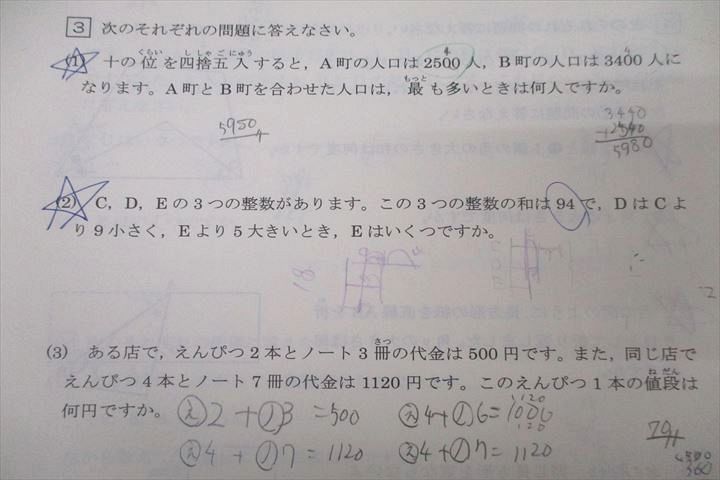 3 次のそれぞれの問題に答えなさい。
(1) 十の位を四捨五入すると，A町の人口は2500人，B町の人口は3400人に
なります。A町とB町を合わせた人口は，最も多いときは何人ですか。
3440
+2540
5980
(2) C，D，Eの3つの整数があります。この3つの整数の和は94で，DはCよ
り9小さく，Eより5大きいとき，Eはいくつですか。
18
(3) ある店で，えんぴつ2本とノート3冊の代金は500円です。また，同じ店で
えんぴつ4本とノート7冊の代金は1120円です。このえんぴつ1本の値段は
何円ですか。
え2+ノ3=500 え4+ノ6=1000
え4+ノ7=1120 え4+ノ7=1120